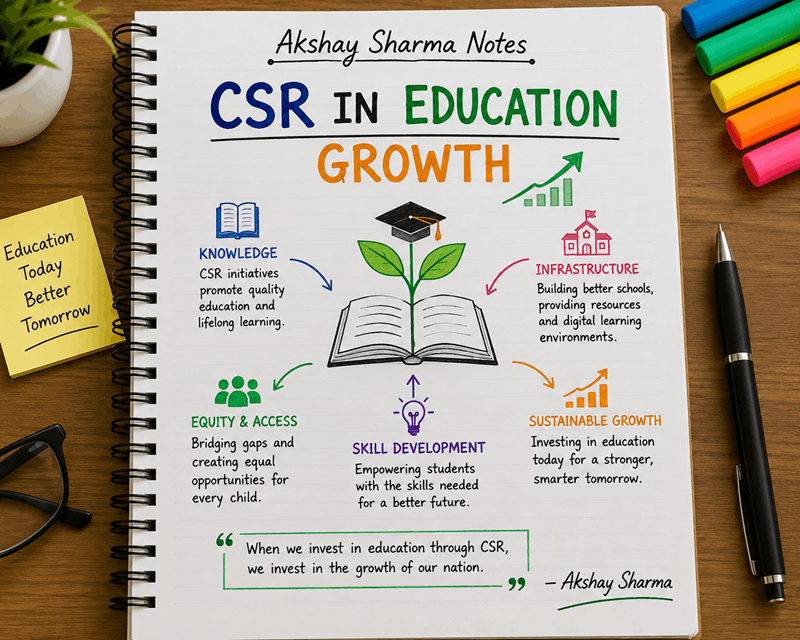 Akshay Sharma Notes
CSR IN EDUCATION
GROWTH
KNOWLEDGE
CSR initiatives
promote quality
education and
lifelong learning.
INFRASTRUCTURE
Building better schools,
providing resources
and digital learning
environments.
Education
Today
Better
Tomorrow
EQUITY & ACCESS
Bridging gaps and
creating equal
opportunities for
every child.
SKILL DEVELOPMENT
Empowering students
with the skills needed
for a better future.
SUSTAINABLE GROWTH
Investing in education
today for a stronger,
smarter tomorrow.
“ When we invest in education through CSR,
we invest in the growth of our nation. ”
– Akshay Sharma